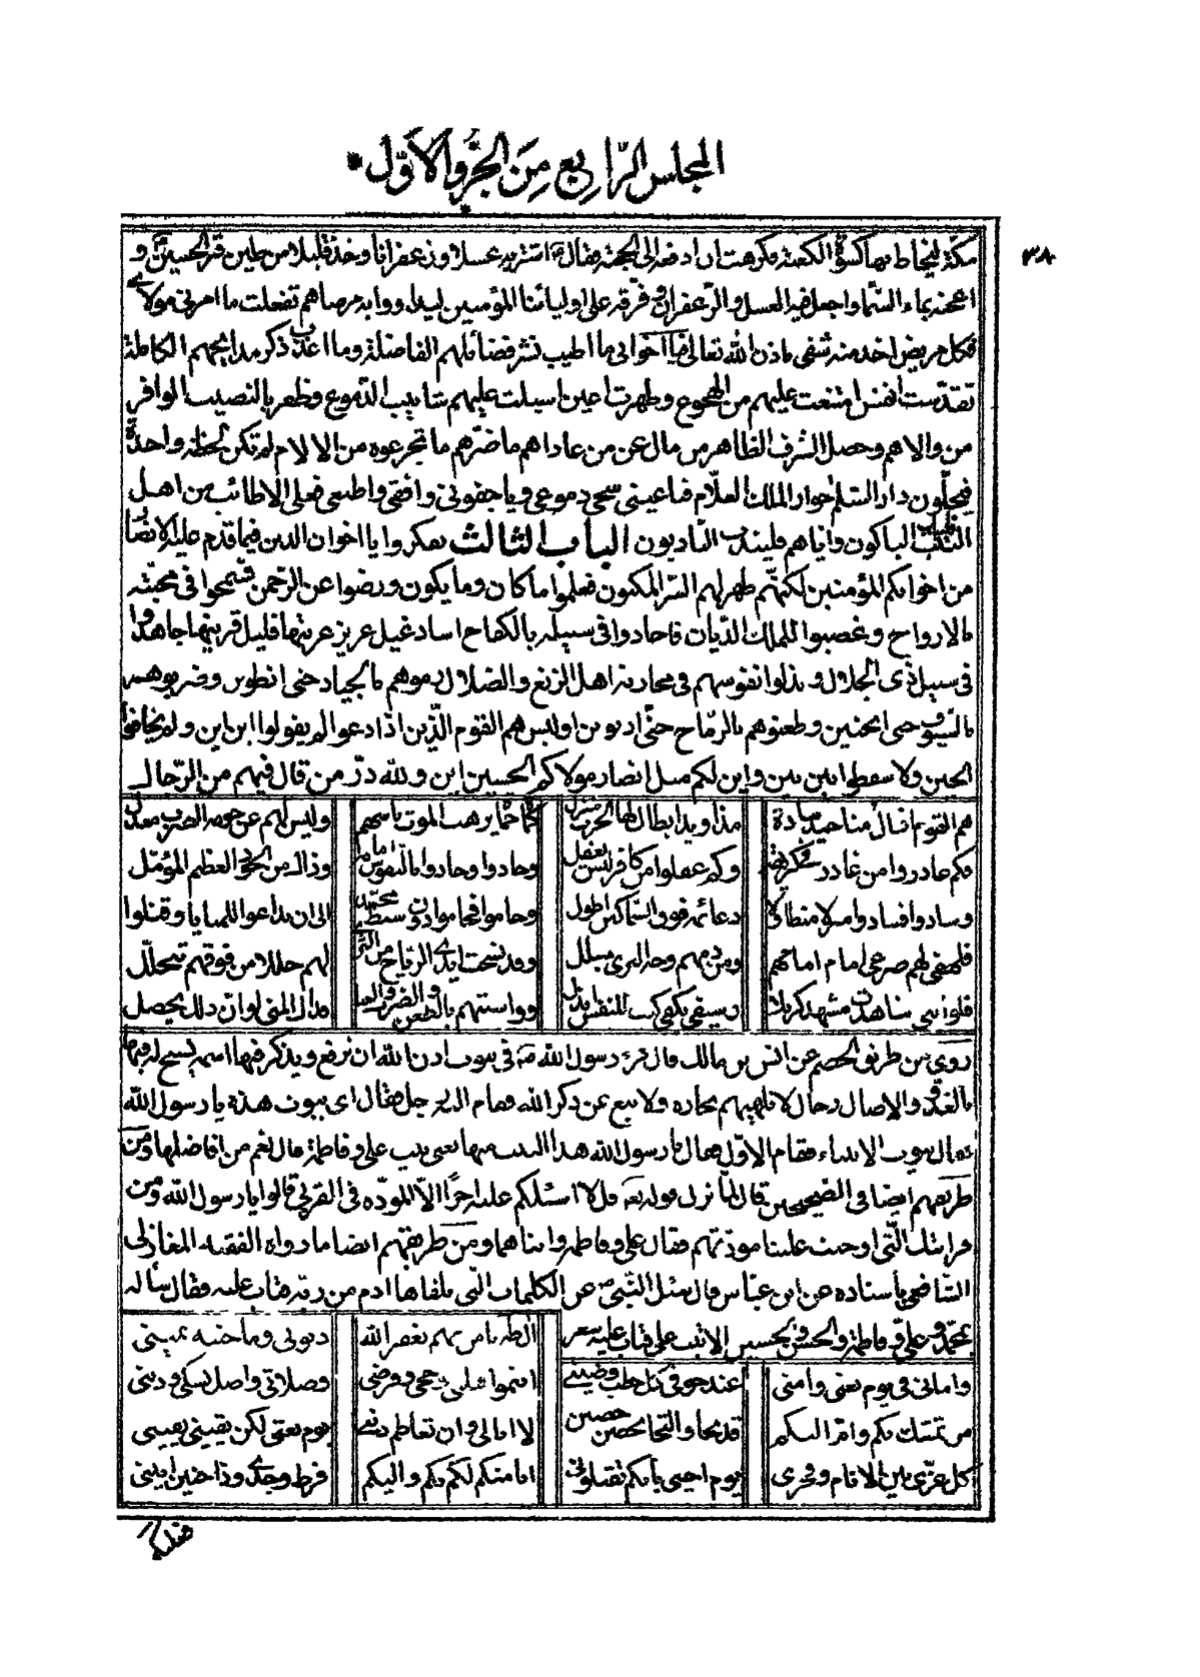 المجلس الرابع من الجزء الأول
٣٨
مكة ليخاط بها كسوة الكعبة فكرهت ان ادفعه الى الحجبة فقال اشتر به عسلا وزعفرانا وخذ قليلا من طين قبر الحسين و
اعجنه بماء السماء واجعل فيه العسل والزعفران وفرقه على اوليائنا المؤمنين ليداووا به مرضاهم ففعلت ما امرني مولاي
فكل مريض اخذ منه شفي باذن الله تعالى فيا اخواني ما اطيب نشر فضائلهم الفاضلة وما اعذب ذكر مدايحهم الكاملة
تقدست انفس امتنعت عليهم من الهجوع وطهرت اعين اسبلت عليهم شابيب الدموع وظفر بالنصيب الوافر
من والاهم وحصل الشرف الظاهر من مال عن من عاداهم ما ضرهم ما تجرعوه من الالام لم تكن لحظة واحدة
فيحلون دار السلم جوار الملك العلام فيا عيني سحي دموعي ويا جفوني وافقي واطيعي فعلى الاطائب من اهل
البيت فليبك الباكون واياهم فليندب النادبون الباب الثالث تفكروا يا اخوان الدين فيما قدم عليه الانصار
من اخوانكم المؤمنين لكنهم ظهر لهم السر المكنون فعلموا ما كان وما يكون ورضوا عن الرحمن فسمحوا في محبته
بالارواح وغضبوا للملك الديان فجادوا في سبيله بالكفاح اساد غيل عزيز عرينها قليل قرينها جاهدوا
في سبيل ذي الجلال وبذلوا نفوسهم في محاربة اهل الزيغ والضلال رموهم بالجياد حتى انطوين وضربوهم
بالسيوف حتى انحنين وطعنوهم بالرماح حتى اوليس هم القوم الذين اذا دعوا لم يقولوا اين اين ولم يخافوا
الحين ولا سقطوا بين بين واين لكم مثل انصار مولاكم الحسين اين ولله در من قال فيهم من الرجال
هم القوم اقيال مناجيد سادة
مذاويد ابطال لها الحرب
كماة حماة يرهب الموت باسهم
وليس لهم عن حومة الضرب معدل
فكم غادروا من غادر في مكره
وكم عقلوا من كافر ليس يعقل
وجادوا وجادوا بالنفوس امامهم
وذاك من الجود العظيم المؤمل
وسادوا وشادوا
دعائمه فوق السماكين اطول
وحاموا فحاموا دون سبط محمد
الى ان تداعوا للمنايا وقتلوا
فلهفي لهم صرعى امام امامهم
ومن دمهم وجه الثرى مبلل
وقد نسجت ايدي الرياح من الثرى
لهم حللا من فوقهم تتحلل
فلو انني شاهدت مشهد كربلا
وسيفي بكفي كنت للنفس ابذل
وواسيتهم بالطعن والضرب
فذاك المنى لو ان ذلك يحصل
روي من طريق الخصم عن انس بن مالك قال قرء رسول الله في بيوت اذن الله ان ترفع ويذكر فيها اسمه يسبح له فيها
بالغدو والاصال رجال لا تلهيهم تجارة ولا بيع عن ذكر الله فقام اليه رجل فقال اي بيوت هذه يا رسول الله
فقال بيوت الانبياء فقام الاول فقال يا رسول الله هذا البيت منها يعني بيت علي وفاطمة قال نعم من افاضلها ومن
طريقهم ايضا في الصحيحين قال لما نزل قوله تعالى قل لا اسئلكم عليه اجرا الا المودة في القربى قالوا يا رسول الله ومن
قرابتك التي اوجبت علينا مودتهم فقال علي وفاطمة وابناهما ومن طريقهم ايضا ما رواه الفقيه المغازلي
الشافعي باسناده عن ابن عباس قال سئل النبي عن الكلمات التي تلقاها ادم من ربه فتاب عليه فقال سأله
بمحمد وعلي وفاطمة والحسن والحسين الا تبت علي فتاب عليه شعر
ال طه يا من بهم يغفر الله
ذنوبي وما جنته يميني
واماني في يوم بعثي وامني
عند خوفي في كل خطب
انتموا حجي وفرضي
وصلاتي واصل نسكي وديني
من تمسك بكم وامر اليكم
قد نجا والتجا بحصن حصين
لا ابالي وان تعاظم ذنبي
يوم بعثي لكن يقيني يقيني
كل عزي بين الانام وفخري
يوم احيى بانكم تقبلوني
انا منكم لكم بكم واليكم
فرط وجدي وذا حنين انيني